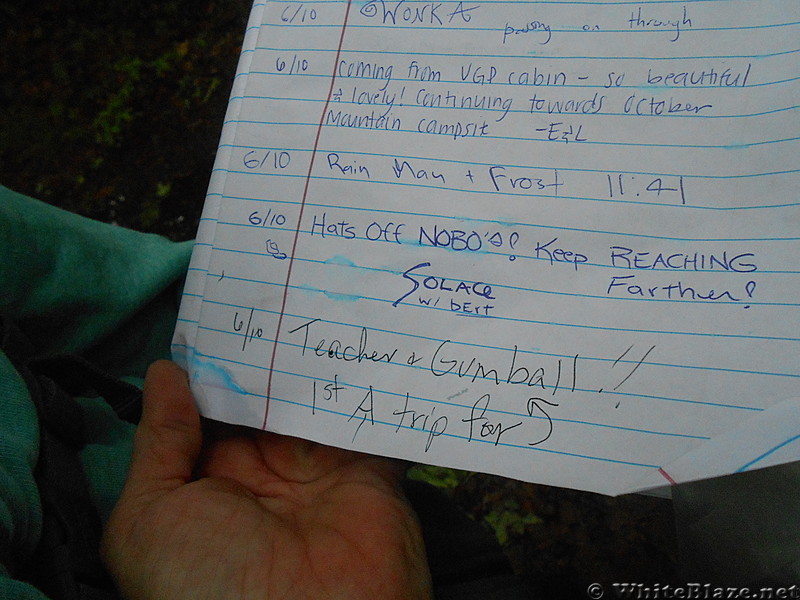 6/10 WONKA passing on through
6/10 coming from UGP cabin - so beautiful
& lovely! Continuing towards October
Mountain campsit -E&L
6/10 Rain Man + Frost 11:41
6/10 Hats Off NOBO's! Keep REACHING
Farther!
SOLACE
w/ bErt
6/10 Teacher & Gumball!!
1st A trip for
© WhiteBlaze.net